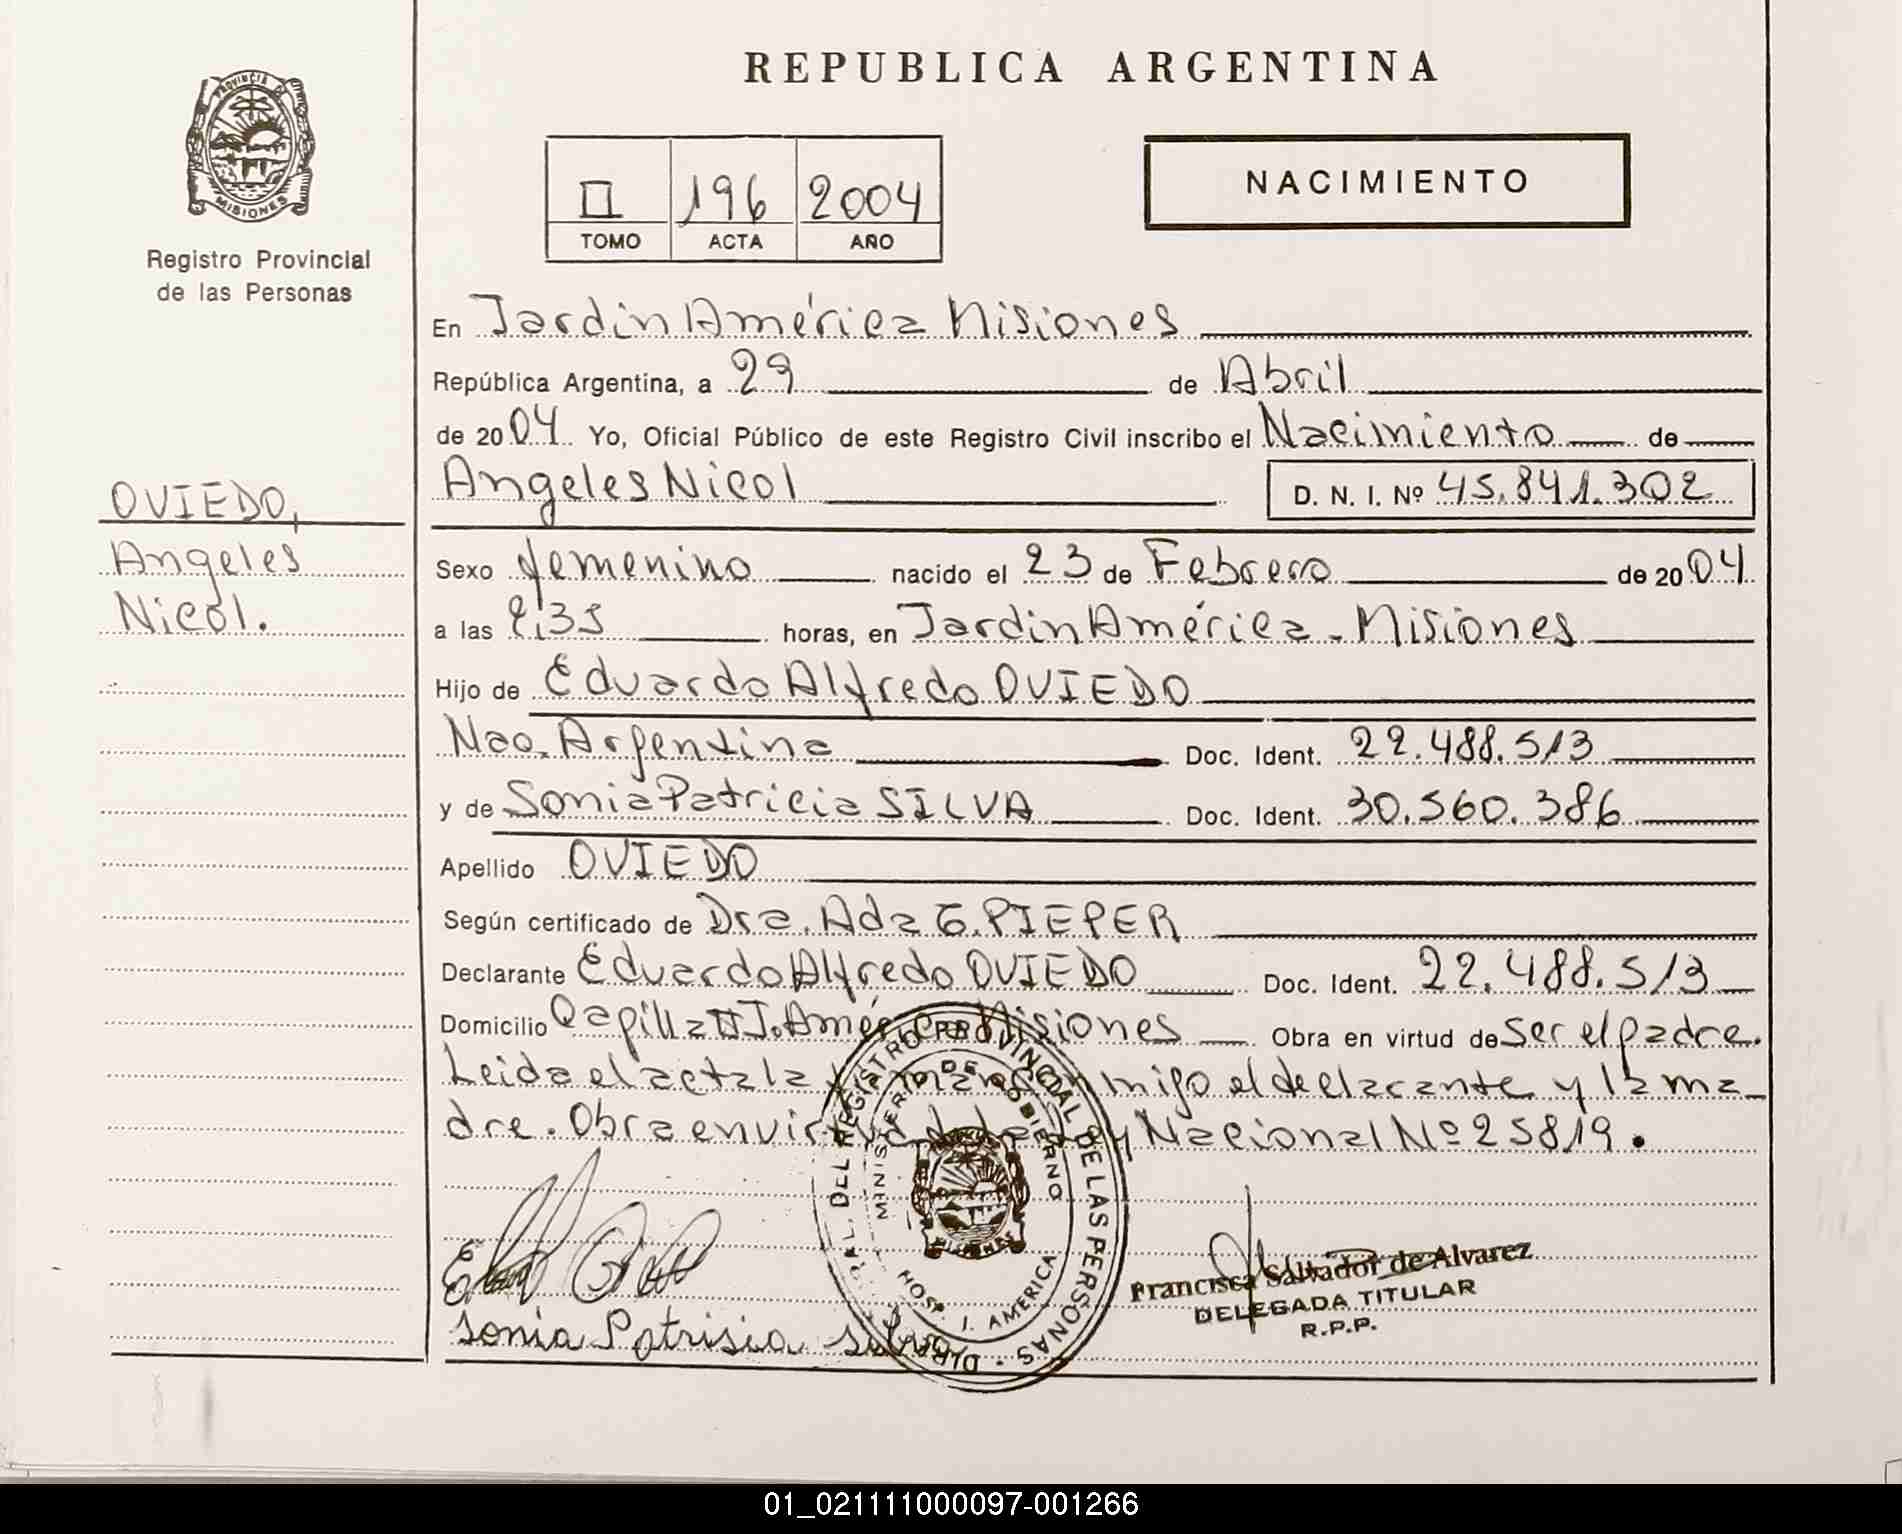 REPUBLICA ARGENTINA
PROVINCIA DE
MISIONES
Registro Provincial
de las Personas
II 196 2004
TOMO ACTA AÑO
NACIMIENTO
En Jardin América Misiones
República Argentina, a 29 de Abril
de 2004 Yo, Oficial Público de este Registro Civil inscribo el Nacimiento de
Angeles Nicol D. N. I. Nº 45.841.302
OVIEDO,
Angeles
Nicol.
Sexo femenino nacido el 23 de Febrero de 2004
a las horas, en Jardin América - Misiones
Hijo de Eduardo Alfredo OVIEDO
Nac. Argentina Doc. Ident. 22.488.513
y de Sonia Patricia SILVA Doc. Ident. 30.560.386
Apellido OVIEDO
Según certificado de Dra. Ada G. PIEPER
Declarante Eduardo Alfredo OVIEDO Doc. Ident. 22.488.513
Domicilio Capilla II J. América Misiones Obra en virtud de ser el padre.
Leida el acta la firman conmigo el declarante y la ma_
dre. Obra en virtud de la Ley Nacional Nº 25819.
DIR. GRAL. DEL REGISTRO PROVINCIAL DE LAS PERSONAS
MINISTERIO DE GOBIERNO
HOSP. J. AMERICA
MISIONES
Sonia Patrisia Silva
Francisca Salvador de Alvarez
DELEGADA TITULAR
R.P.P.
01_021111000097-001266